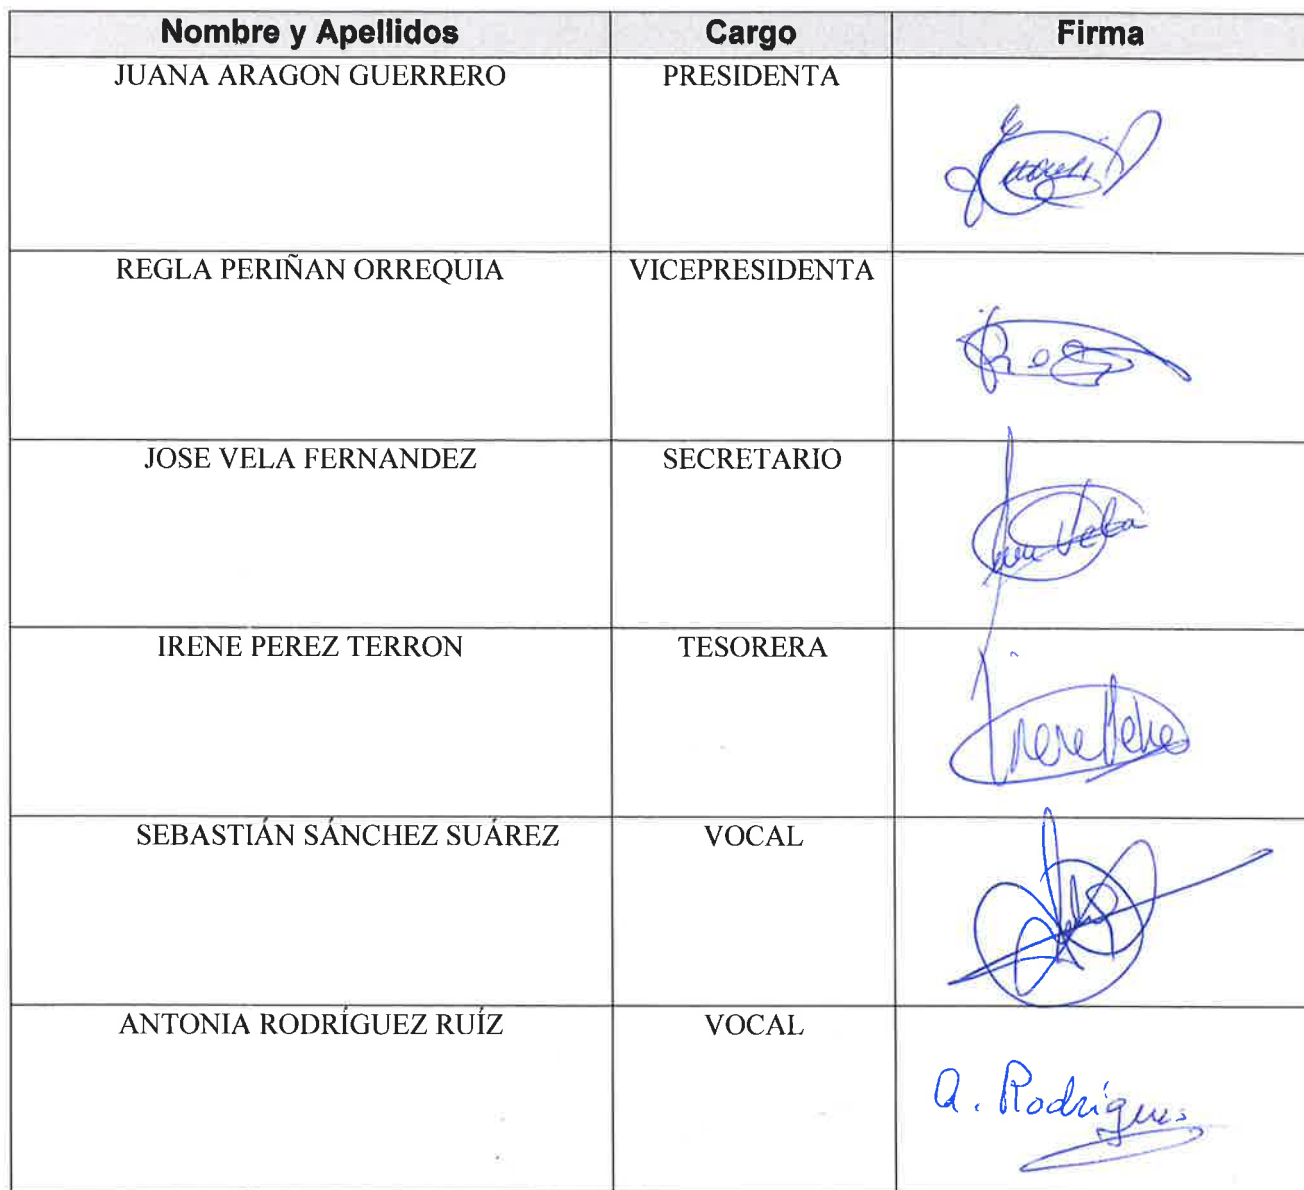 Nombre y Apellidos Cargo Firma
JUANA ARAGON GUERRERO PRESIDENTA
REGLA PERIÑAN ORREQUIA VICEPRESIDENTA
JOSE VELA FERNANDEZ SECRETARIO
Vela
IRENE PEREZ TERRON TESORERA
Irene
SEBASTIÁN SÁNCHEZ SUÁREZ VOCAL
ANTONIA RODRÍGUEZ RUÍZ VOCAL
A. Rodrígues